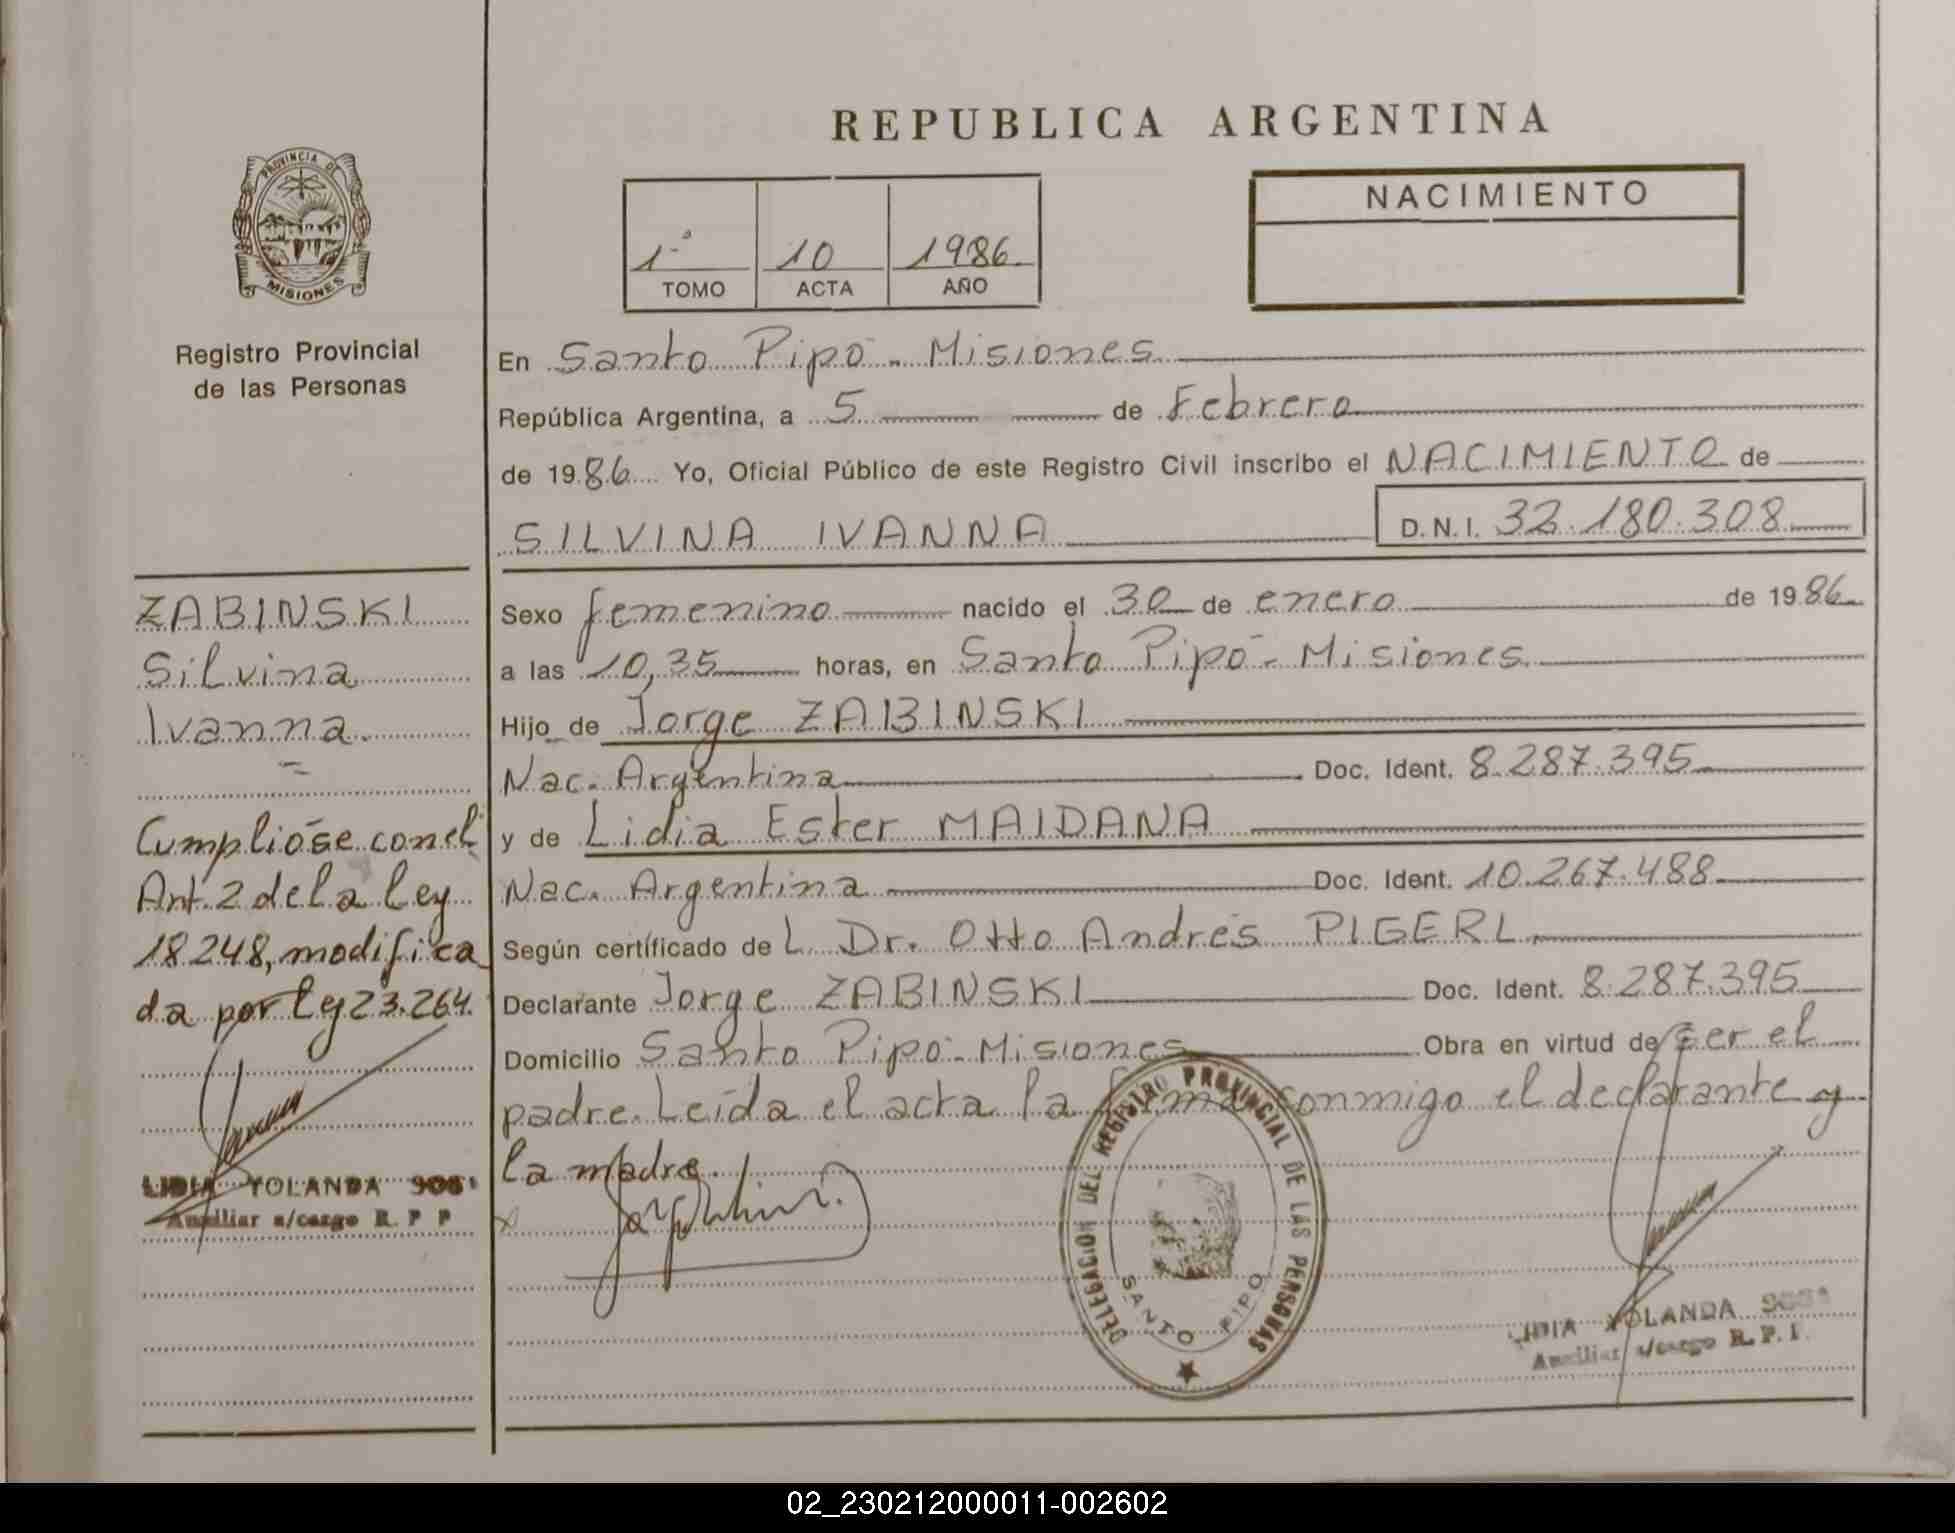 REPUBLICA ARGENTINA
PROVINCIA DE
MISIONES
Registro Provincial
de las Personas
1º 10 1986
TOMO ACTA AÑO
NACIMIENTO
En Santo Pipó - Misiones
República Argentina, a 5 de Febrero
de 1986 Yo, Oficial Público de este Registro Civil inscribo el NACIMIENTO de
SILVINA IVANNA D.N.I. 32.180.308
ZABINSKI
Silvina
Ivanna.
Cumplióse con el
Art. 2 de la Ley
18.248, modifica
da por Ley 23.264.
LIDIA YOLANDA
Auxiliar a/cargo R. P. P
Sexo femenino nacido el 30 de enero de 1986
a las 10,35 horas, en Santo Pipó - Misiones
Hijo de Jorge ZABINSKI
Nac. Argentina Doc. Ident. 8.287.395
y de Lidia Ester MAIDANA
Nac. Argentina Doc. Ident. 10.267.488
Según certificado de L Dr. Otto Andrés PIGERL
Declarante Jorge ZABINSKI Doc. Ident. 8.287.395
Domicilio Santo Pipó - Misiones Obra en virtud de ser el
padre. Leída el acta la firma conmigo el declarante y
la madre.
DELEGACION DEL REGISTRO PROVINCIAL DE LAS PERSONAS
SANTO PIPO
LIDIA YOLANDA
Auxiliar a/cargo R. P. P.
02_230212000011-002602